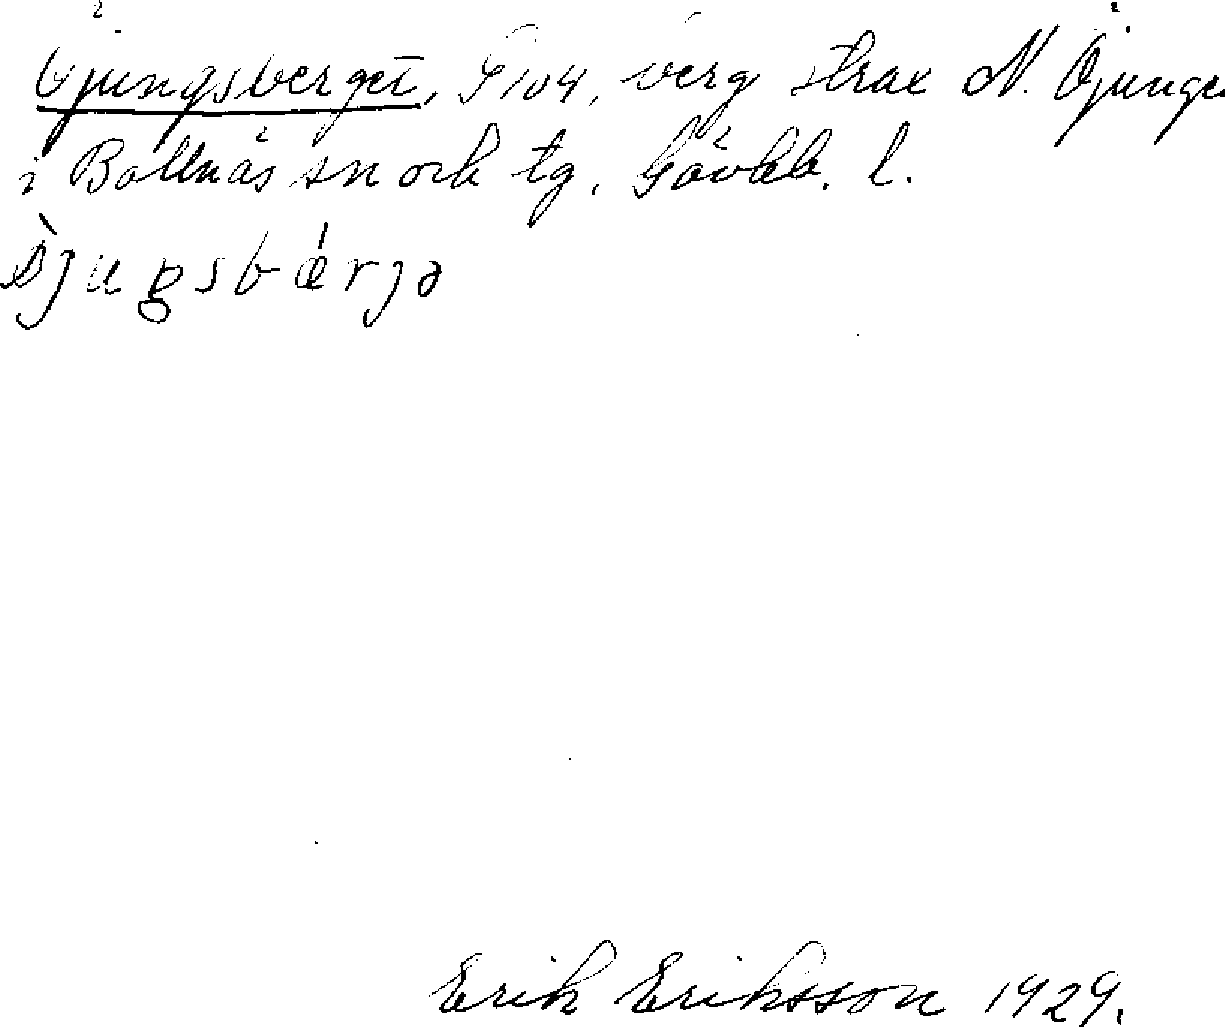 Öjungsberget, G 104, berg strax N. Öjunge
i Bollnäs sn och tg. Gävleb. l.
Erik Eriksson 1929.